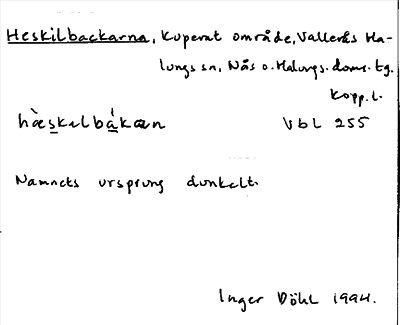 Heskilbackarna, Kuperat område, Vallerås Ma-
lungs sn, Nås o. Malungs. doms. tg.
Kopp. l.
hàeskelbákaen Vbl 255
Namnets ursprung dunkelt.
Inger Döhl 1994.